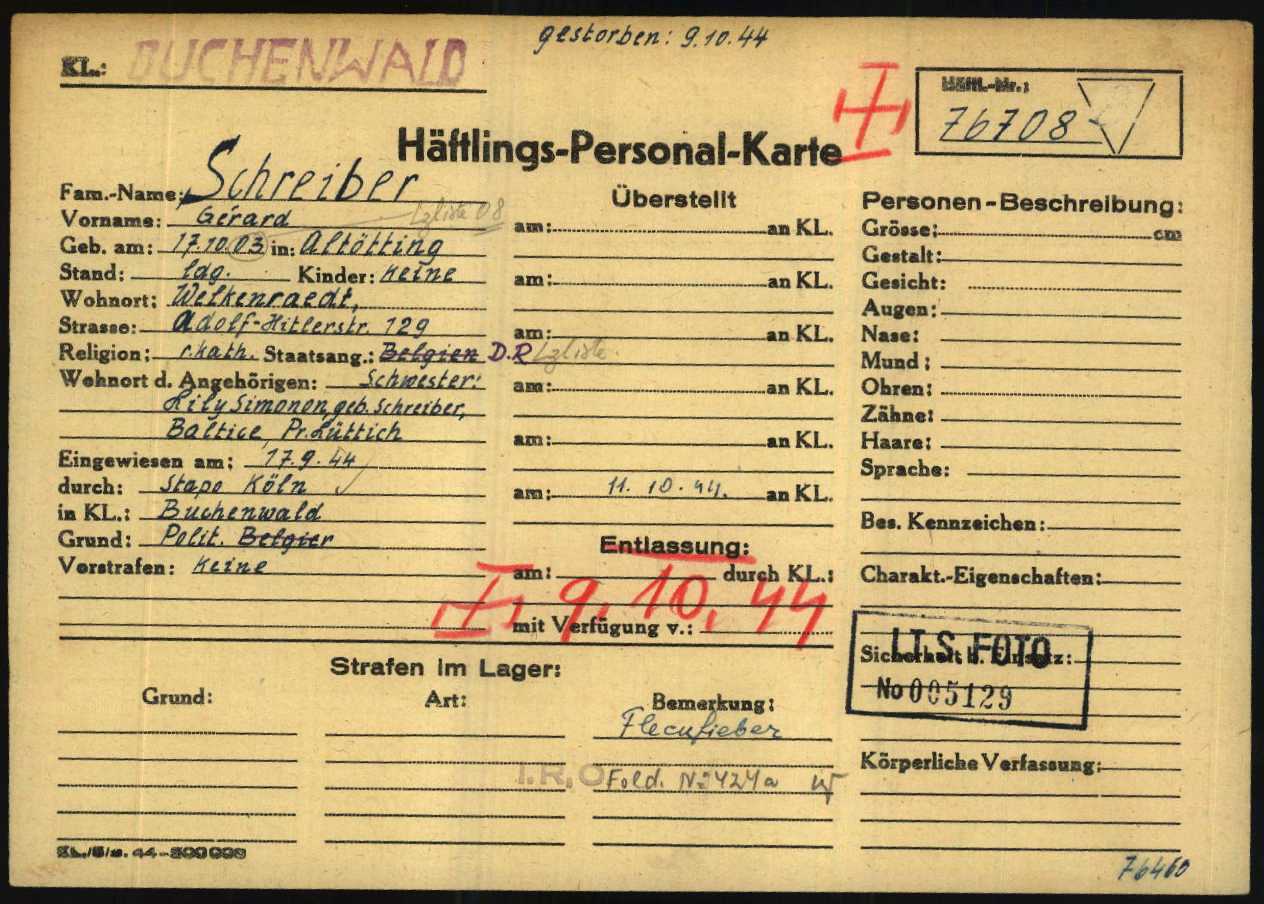 gestorben: 9.10.44
KL.: BUCHENWALD
Häftl.-Nr.:
76708
Häftlings-Personal-Karte
Fam.-Name: Schreiber
Vorname: Gérard Lzliste 08
Geb. am: 17.10.03 in: Altötting
Stand: ldg. Kinder: keine
Wohnort: Welkenraedt,
Strasse: Adolf-Hitlerstr. 129
Religion: r.kath. Staatsang.: Belgien D.R Lzliste
Wohnort d. Angehörigen: Schwester:
Lily Simonon, geb. Schreiber,
Baltice, Pr. Lüttich
Eingewiesen am: 17.9.44
durch: Stapo Köln
in KL.: Buchenwald
Grund: Polit. Belgier
Vorstrafen: keine
Überstellt
am: an KL.
am: an KL.
am: an KL.
am: an KL.
am: an KL.
am: 11.10.44. an KL.
Entlassung:
am: durch KL.:
9.10.44
mit Verfügung v.:
Personen-Beschreibung:
Grösse: cm
Gestalt:
Gesicht:
Augen:
Nase:
Mund:
Ohren:
Zähne:
Haare:
Sprache:
Bes. Kennzeichen:
Charakt.-Eigenschaften:
I.T.S. FOTO
Sicherheit b. Einsatz:
No 005129
Körperliche Verfassung:
Strafen im Lager:
Grund: Art: Bemerkung:
Fleckfieber
I.R.O Fold. No 424a
76460